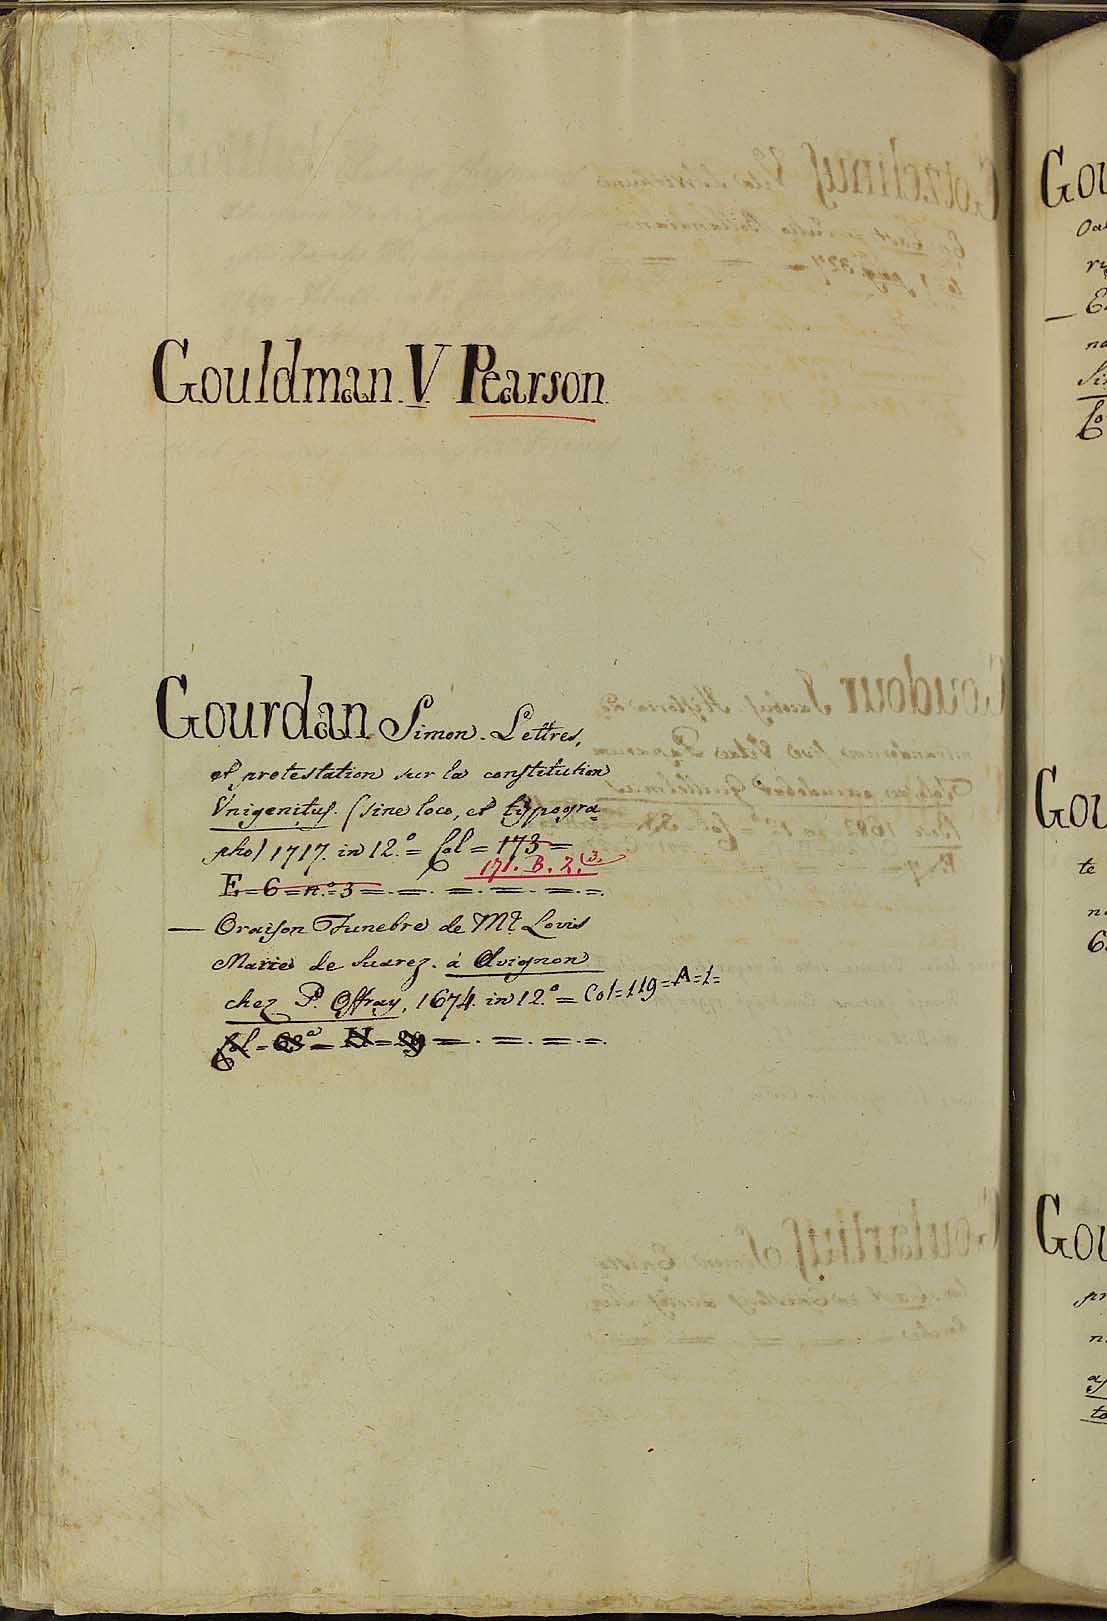 Gouldman. V. Pearson.
Gourdan Simon. Lettres,
et protestation sur la constitution
Vnigenitus. (sine loco, et typogra
pho) 1717. in 12.° = Col = 173 =
171. B. 2. (3.
E = 6 = n.° 3 = = . = . = . = . = .
— Oraison Funebre de Mr Lovis
Marie de Suarez. à Avignon
chez P. Offray, 1674. in 12.° = Col = 119 = A = 1 =
Col = 63ª = N = 29 = . = . = . = .
Gou
te
Gou
pr
to